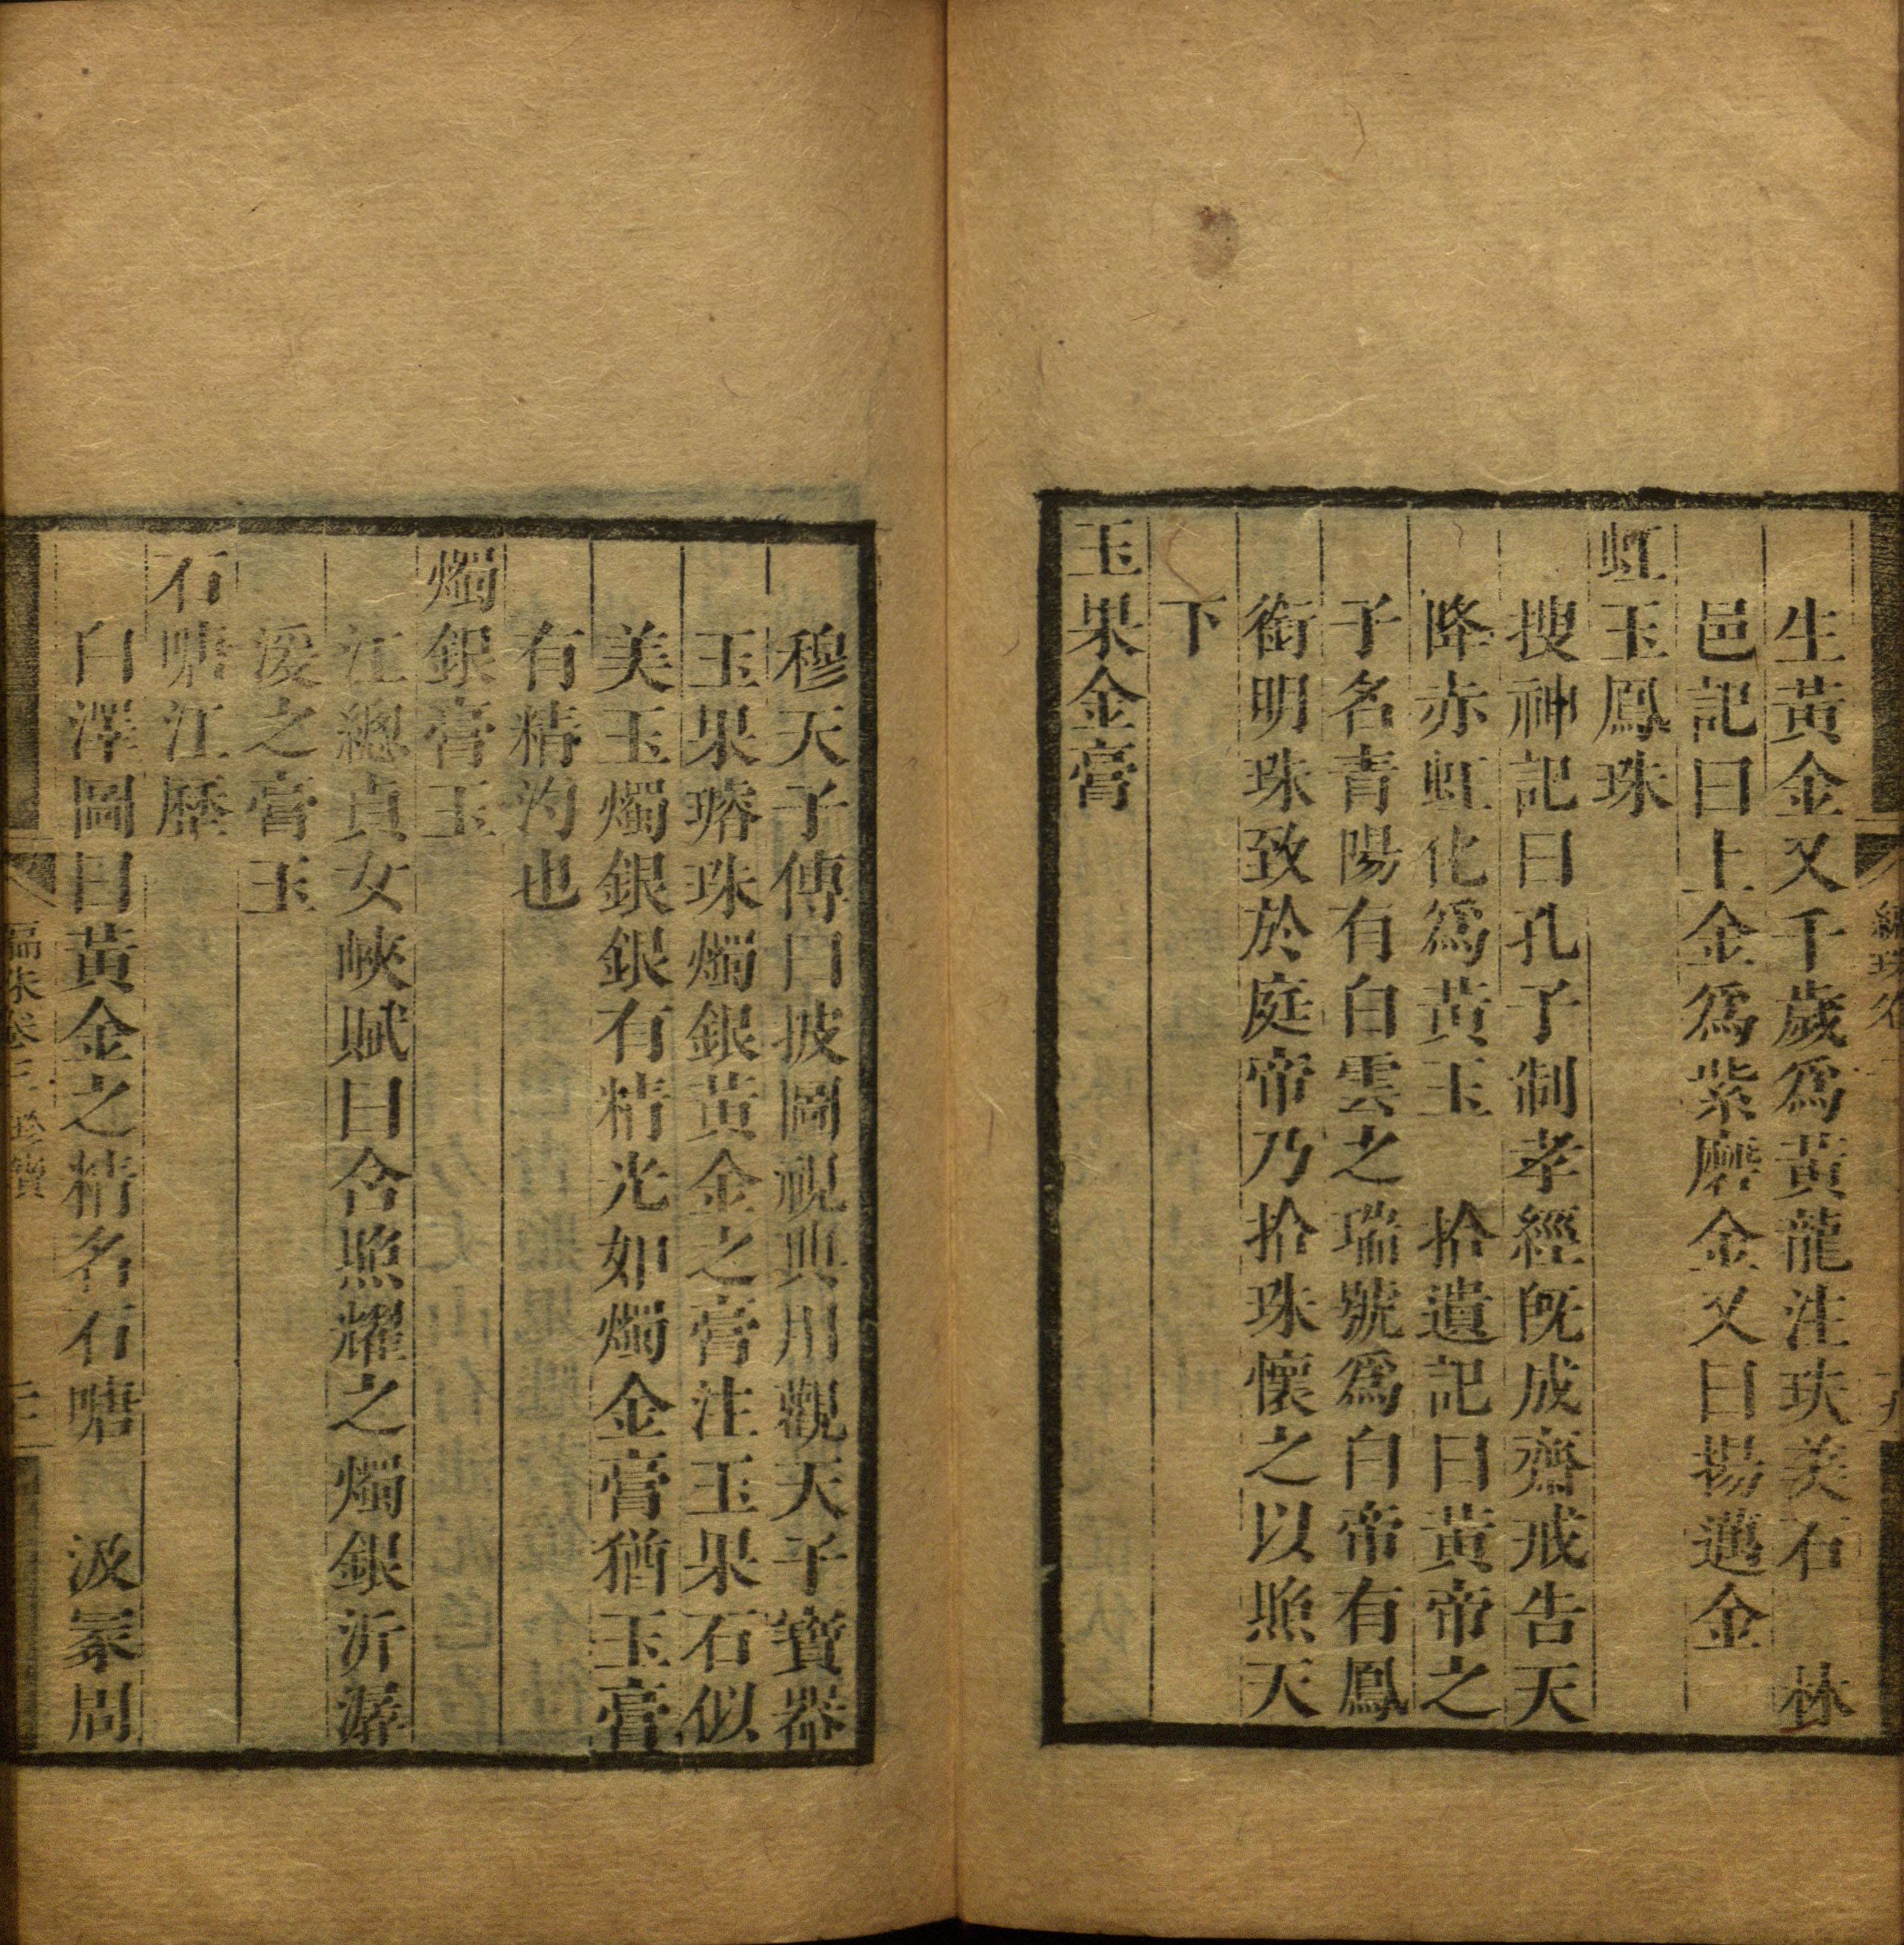 生黃金又千歲爲黃龍注玦美石　林
邑記曰上金爲紫磨金又曰揚邁金
虹玉鳳珠
搜神記曰孔子制孝經既成齋戒告天
降赤虹化爲黃玉　拾遺記曰黃帝之
子名青陽有白雲之瑞號爲白帝有鳳
銜明珠致於庭帝乃拾珠懷之以照天
下
玉果金膏
穆天子傳曰披圖視典用觀天子寶器
玉果璿珠燭銀黃金之膏注玉果石似
美玉燭銀銀有精光如燭金膏猶玉膏
有精汋也
燭銀膏玉
江總貞女峽賦曰含照耀之燭銀沂潺
湲之膏玉
石嘡江歴
白澤圖曰黃金之精名石嘡　汲冢周
編珠卷三　珍寶